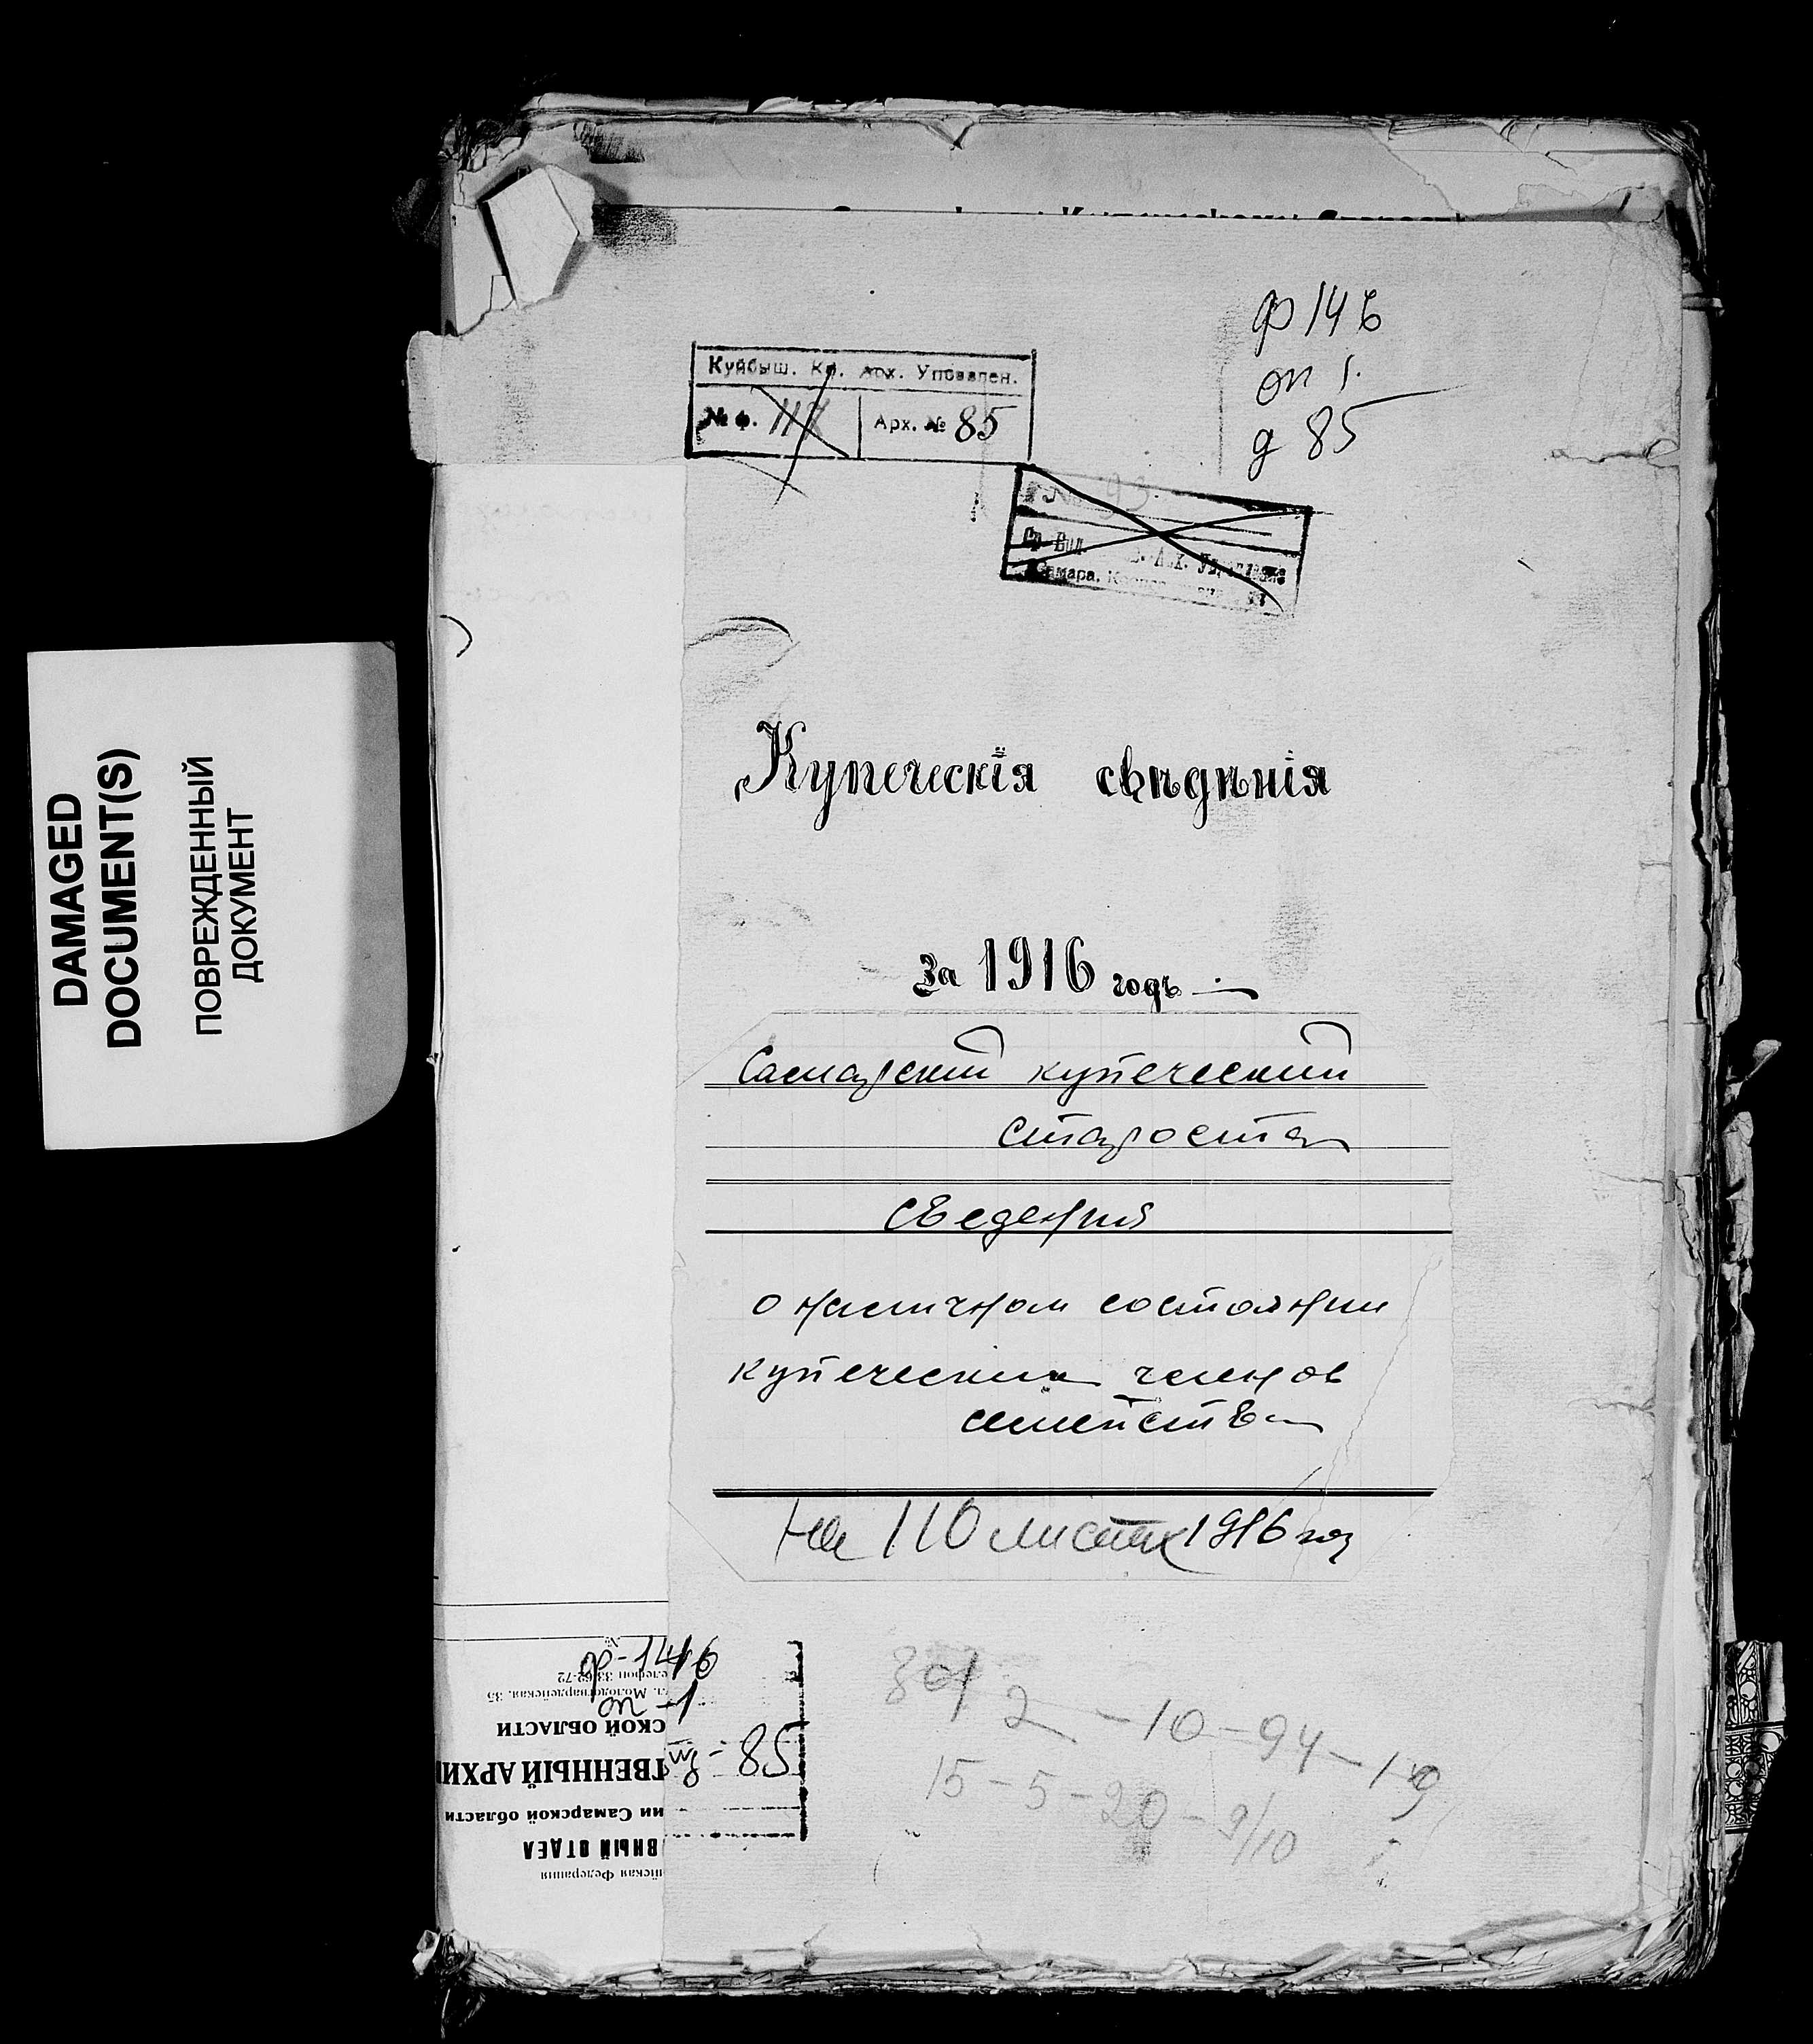 DAMAGED
DOCUMENT(S)
ПОВРЕЖДЕННЫЙ
ДОКУМЕНТ
ф 146
оп 1.
д 85
Куйбыш. Кр. Арх. Управлен.
№ ф. 117 Арх. № 85
№ 93
Купеческія свѣдѣнія
За 1916 годъ
Самарский купеческий
староста
сведения
о наличном состоянии
купеческих членов
семейства
На 110 листах 1916 год
ф-146
елефон 33-62-72
л. Молодогвардейская, 35
оп-1
СКОЙ ОБЛАСТИ
85
ТВЕННЫЙ АРХИ
ии Самарской области
ВНЫЙ ОТДЕЛ
ийская Федерация
2-10-94-19
15-5-20-9/10